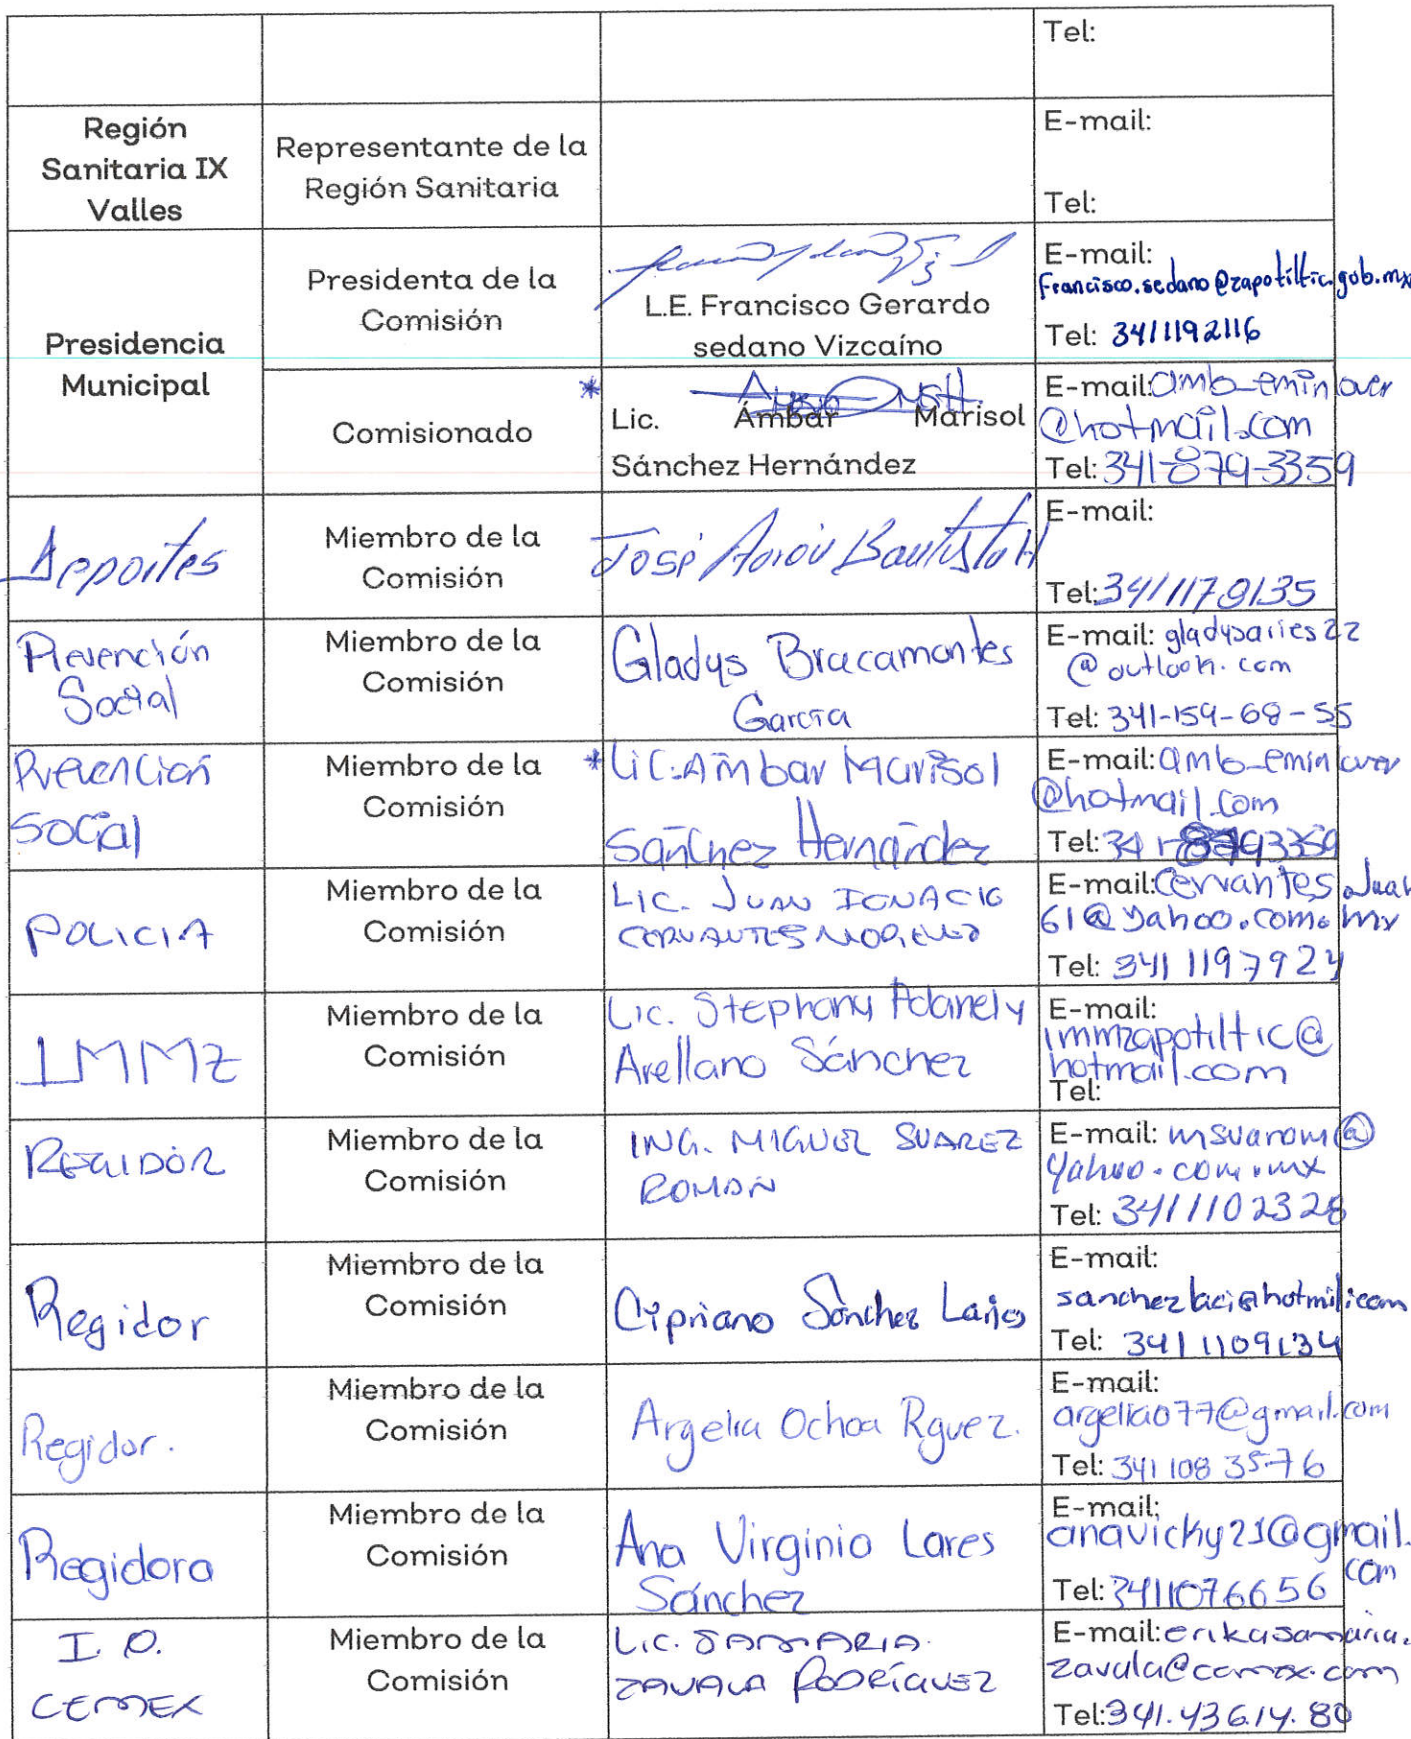 Tel:
Región
Sanitaria IX
Valles
Representante de la
Región Sanitaria
E-mail:
Tel:
Presidencia
Municipal
Presidenta de la
Comisión
L.E. Francisco Gerardo
sedano Vizcaíno
E-mail:
Francisco.sedano@zapotiltic.gob.mx
Tel: 3411192116
Comisionado
* Lic. Ámbar Marisol
Sánchez Hernández
E-mail: amb_eminlover
@hotmail.com
Tel: 341-879-3359
Deportes
Miembro de la
Comisión
José Aarón Bautista H
E-mail:
Tel: 3411179135
Prevención
Social
Miembro de la
Comisión
Gladys Bracamontes
García
E-mail: gladysaries22
@outlook.com
Tel: 341-159-68-55
Prevención
Social
Miembro de la
Comisión
* Lic. Ámbar Marisol
Sánchez Hernández
E-mail: amb_eminlover
@hotmail.com
Tel: 341-8793359
POLICIA
Miembro de la
Comisión
LIC. JUAN IGNACIO
CERVANTES MORENO
E-mail: Cervantes.Juan
61@yahoo.com.mx
Tel: 341 1197924
IMMZ
Miembro de la
Comisión
Lic. Stephany Adanely
Arellano Sánchez
E-mail:
immzapotiltic@
hotmail.com
Tel:
REGIDOR
Miembro de la
Comisión
ING. MIGUEL SUAREZ
ROMÁN
E-mail: msuarom@
yahoo.com.mx
Tel: 3411102328
Regidor
Miembro de la
Comisión
Cipriano Sánchez
E-mail:
Tel: 341 1109134
Regidor.
Miembro de la
Comisión
Argelia Ochoa Rguez.
E-mail:
argeliao77@gmail.com
Tel: 341 108 3576
Regidora
Miembro de la
Comisión
Ana Virginia Lares
Sánchez
E-mail:
anavicky21@gmail.
com
Tel: 3411076656
I. O.
CEMEX
Miembro de la
Comisión
Lic. SAMARIA
ZAVALA RODRÍGUEZ
E-mail: erikasamaria.
zavala@cemex.com
Tel: 341.436.14.80